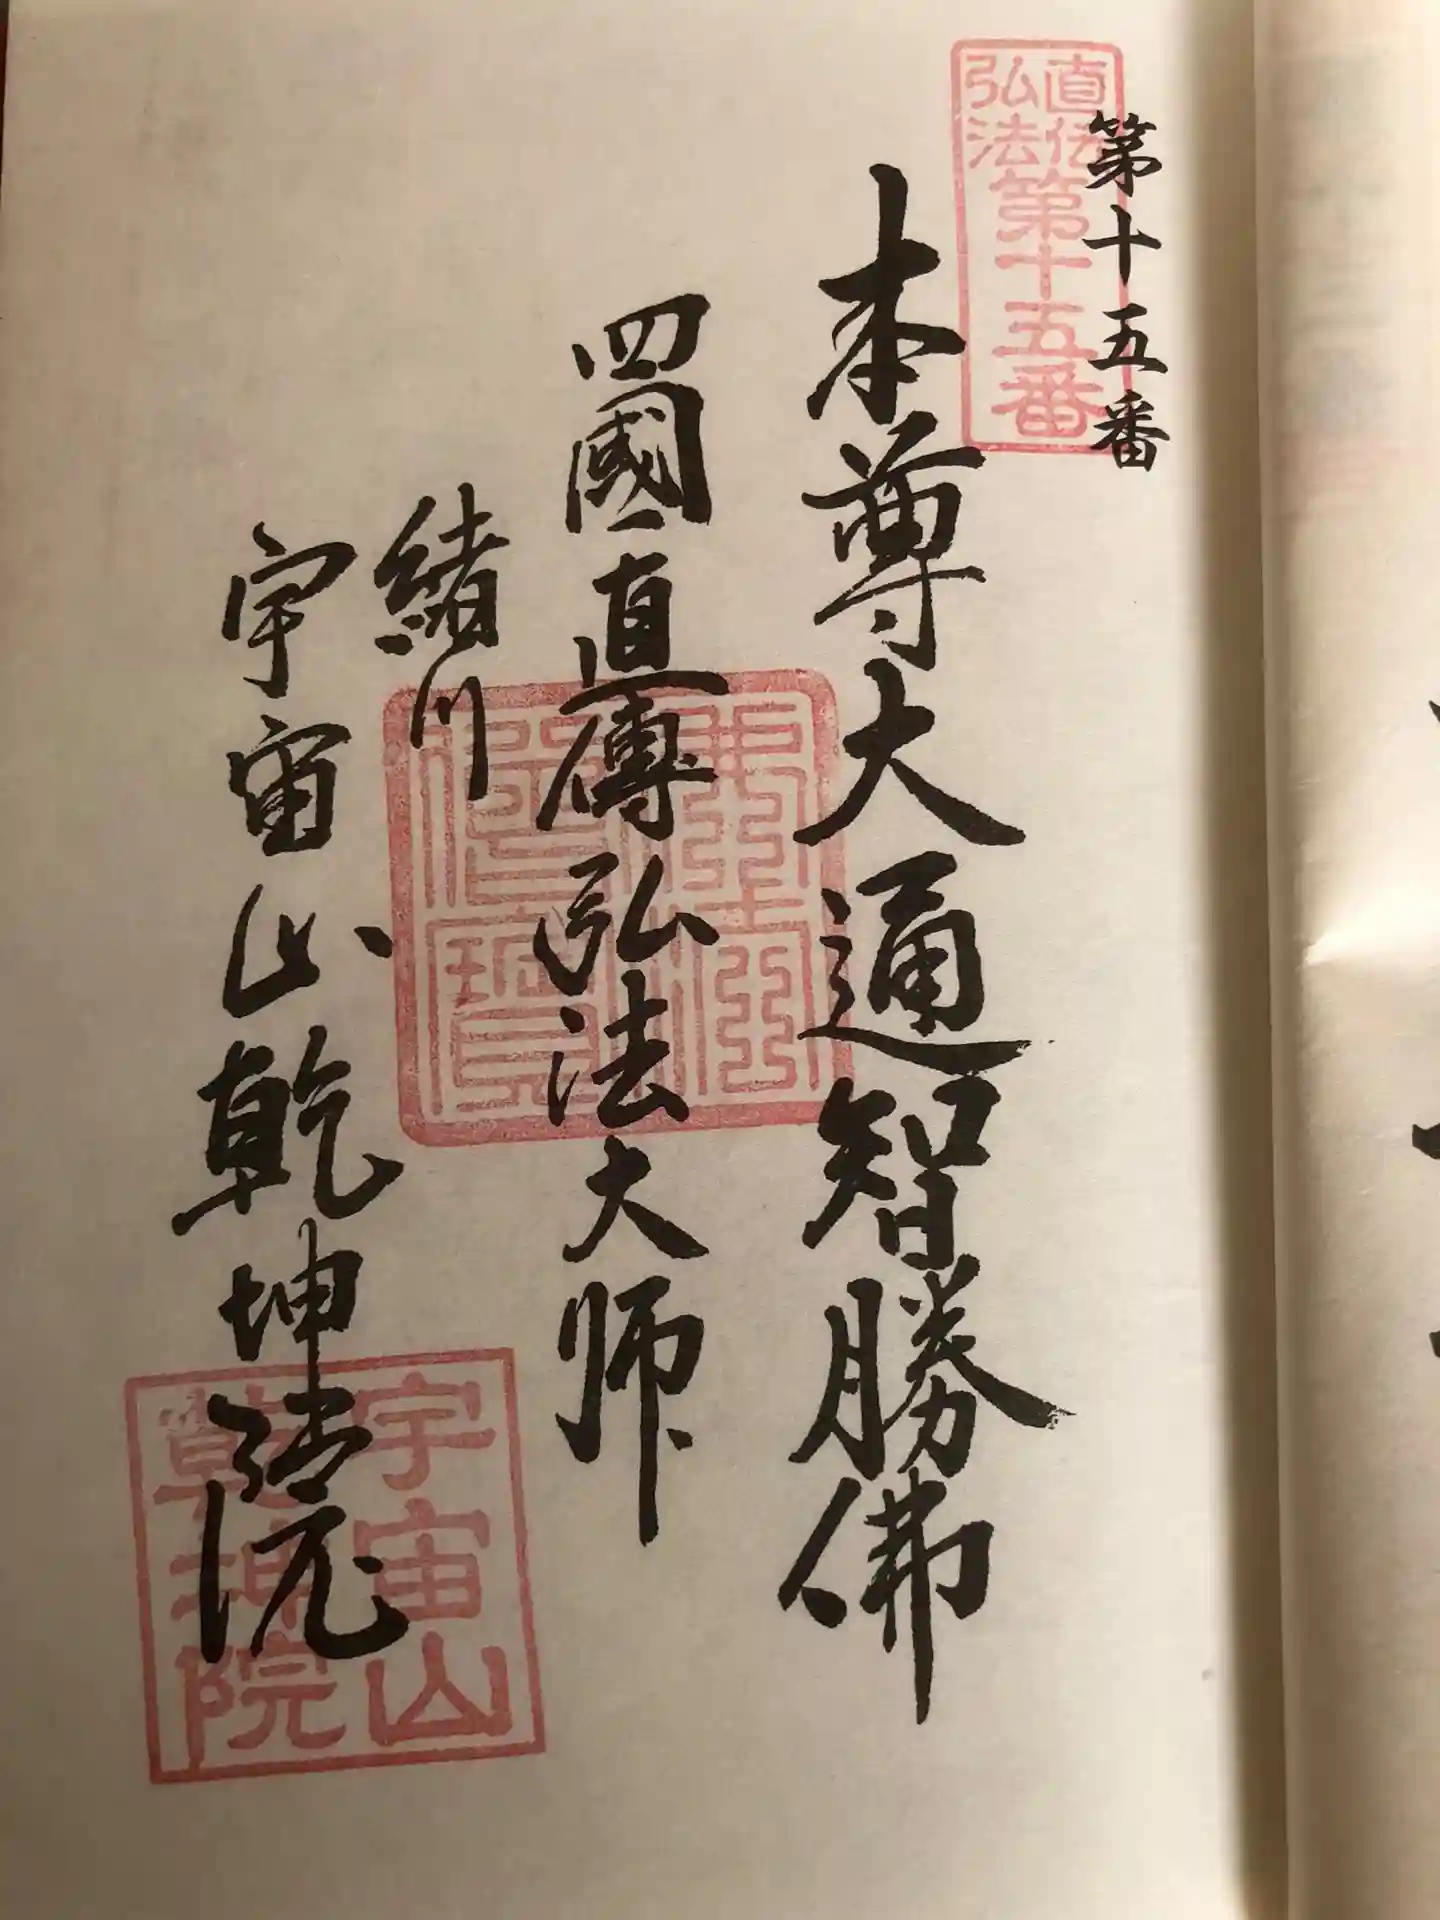 直伝
弘法
第十五番
第十五番
本尊大通智勝佛
四國直傳弘法大师
緒川
宇宙山乾坤院
宇宙山
乾坤院
佛法僧寶